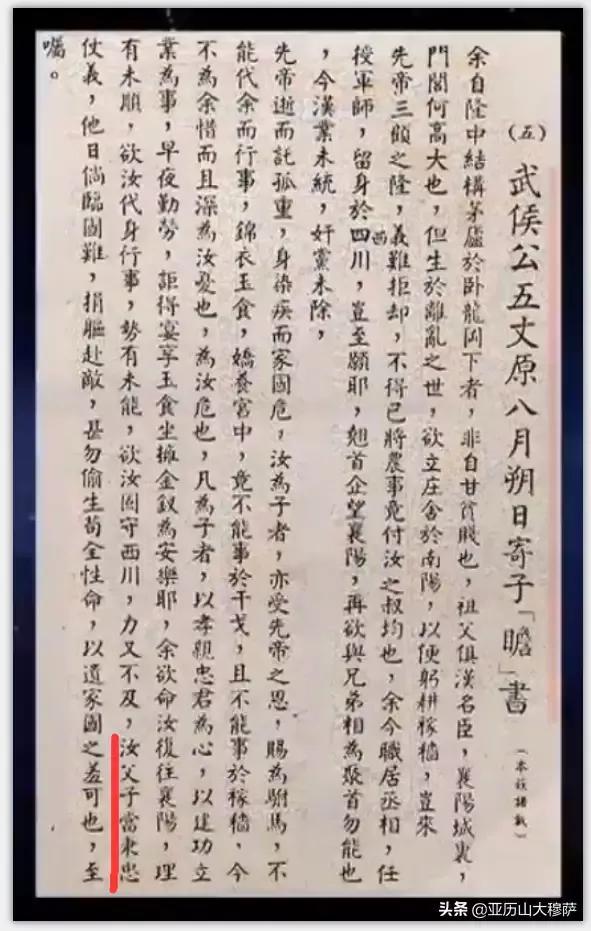 (五) 武侯公五丈原八月朔日寄子「瞻」書 (本族譜載)
余自隆中結構茅廬於臥龍岡下者，非自甘貧賤也，祖父俱漢名臣，襄陽城裏，
門閭何高大也，但生於離亂之世，欲立庄舍於南陽，以便躬耕稼穡，豈來
先帝三顧之隆，義難拒却，不得已將農事竟付汝之叔均也，余今職居丞相，任
授軍師，留身於四川，豈至願耶，翹首企望襄陽，再欲與兄弟相為聚首勿能也
西
，今漢業未統，奸黨未除，
先帝逝而託孤重，身染疾而家國危，汝為子者，亦受先帝之恩，賜為駙馬，不
能代余而行事，錦衣玉食，嬌養宮中，竟不能事於干戈，且不能事於稼穡，今
不為余惜而且深為汝憂也，為汝危也，凡為子者，以孝親忠君為心，以建功立
業為事，早夜勤勞，詎得宴享玉食坐擁金釵為安樂耶，余欲命汝復往襄陽，理
有未順，欲汝代身行事，勢有未能，欲汝固守西川，力又不及，汝父子當秉忠
仗義，他日倘臨國難，捐軀赴敵，甚勿偷生苟全性命，以遺家國之羞可也，至
囑。
头条 @亚历山大穆萨